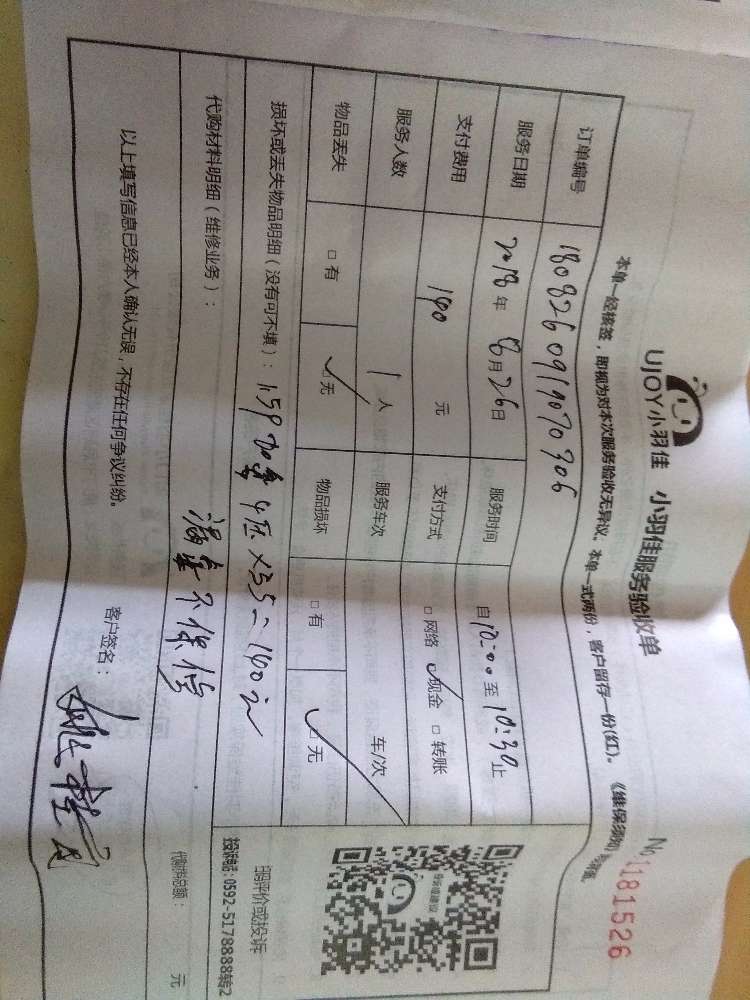 UJOY小羽佳 小羽佳服务验收单
No 1181526
本单一经接签，即视为对本次服务验收无异议。本单一式两份，客户留存一份(红)。《维保须知》
订单编号 180826091907030б
服务日期 2018年 8月26日 服务时间 自10:00至10:30止
支付费用 140 元 支付方式 □网络 ✓现金 □转账
服务人数 1人 服务车次 车/次
物品丢失 □有 ✓无 物品损坏 □有 ✓无
损坏或丢失物品明细（没有可不填）： ×35=140元
代购材料明细（维修业务）： 不保修
代购材料总额： 元
扫码评价或投诉
投诉电话:0592-5178888转2
以上填写信息已经本人确认无误，不存在任何争议纠纷。 客户签名：